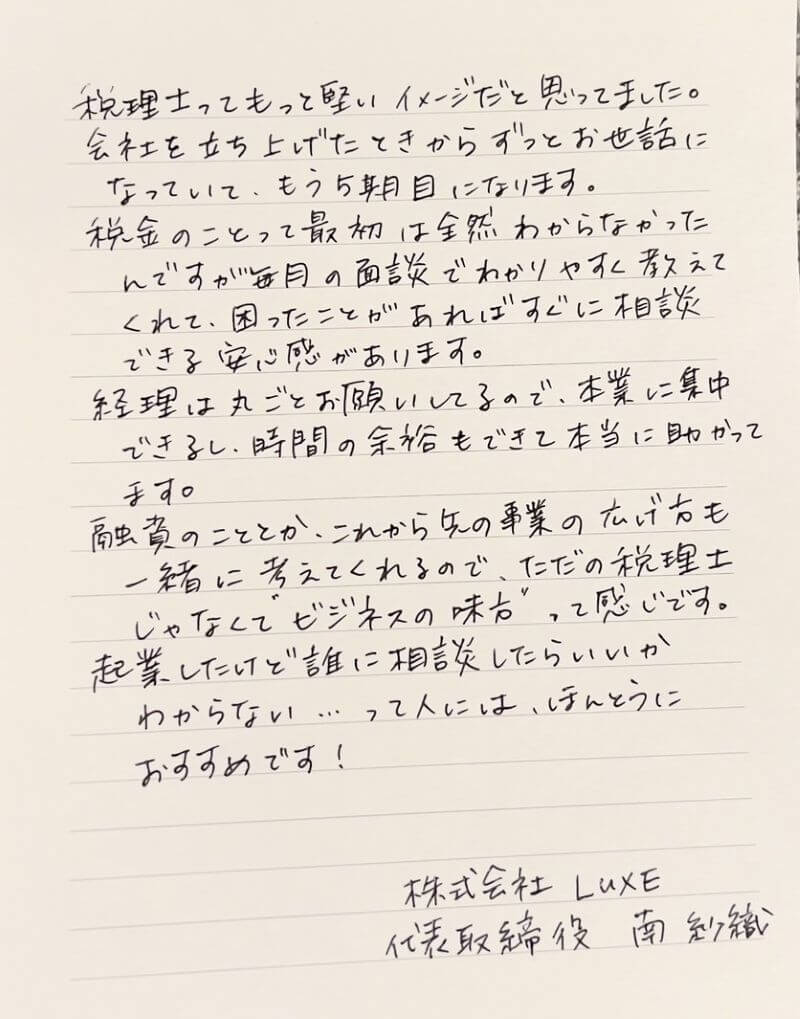 税理士ってもっと堅いイメージだと思ってました。
会社を立ち上げたときからずっとお世話に
なっていて、もう5期目になります。
税金のことって最初は全然わからなかった
んですが毎月の面談でわかりやすく教えて
くれて、困ったことがあればすぐに相談
できる安心感があります。
経理は丸ごとお願いしてるので、本業に集中
できるし、時間の余裕もできて本当に助かって
ます。
融資のこととか、これから先の事業の広げ方も
一緒に考えてくれるので、ただの税理士
じゃなくて"ビジネスの味方"って感じです。
起業したけど誰に相談したらいいか
わからない…って人には、ほんとうに
おすすめです!
株式会社 LUXE
代表取締役 南 紗織